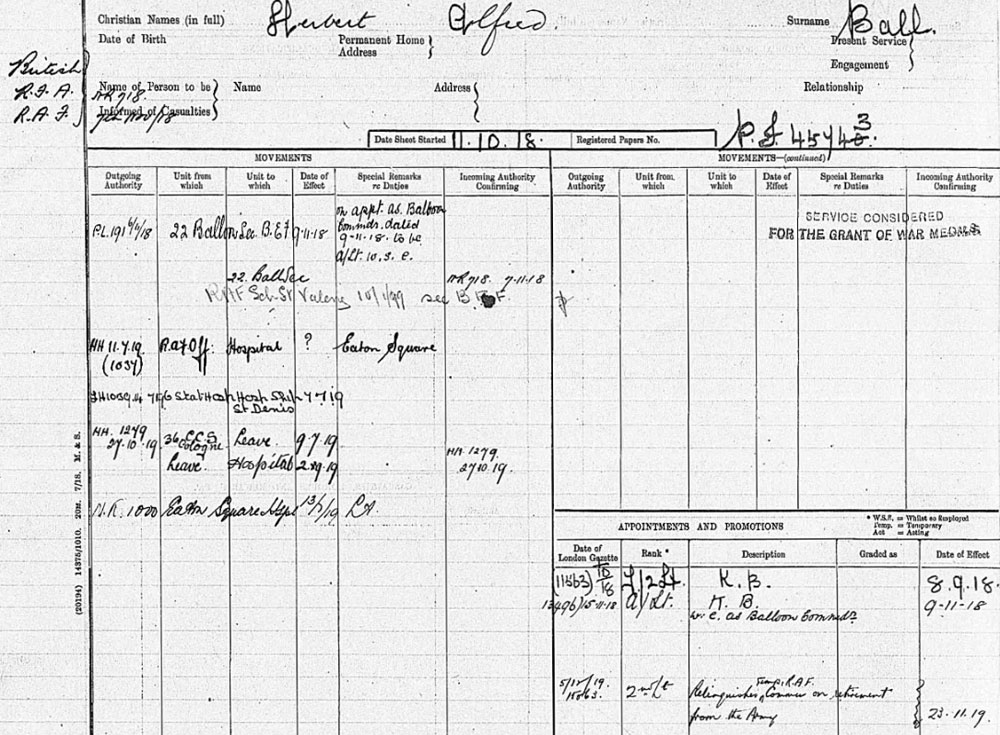 Christian Names (in full) Herbert Alfred. Surname Ball.
Date of Birth Permanent Home Address Present Service
Engagement
British
R.F.A.
R.A.F.
Name of Person to be Informed of Casualties Name Address Relationship
AR 718.
Date Sheet Started 11.10.18. Registered Papers No. P.f. 45743
MOVEMENTS
Outgoing Authority Unit from which Unit to which Date of Effect Special Remarks re Duties Incoming Authority Confirming
P.L. 191 6/11/18 22 Balloon Sec B.E.F 9-11-18 on appt. as Balloon
Commdr. dated
9-11-18. to be
a/Lt. w.s.e.
22. Ball Sec AR 718. 7-11-18
RAF Sch. St Valery 10/1/99 sec B.E.F.
HH 11.7.19. (1034) R.a.f Off: Hospital ? Eaton Square
Stat Hosp Hosp Ship
St Denis 7 7 19
HH. 1279
27.10.19. 36 C.C.S
Cologne Leave. 9.7.19
Leave. Hospital 2.9.19 HH. 1279.
27.10.19.
N.K. 1000 Eaton Square 13/7/19
MOVEMENTS—(continued)
Outgoing Authority Unit from which Unit to which Date of Effect Special Remarks re Duties Incoming Authority Confirming
SERVICE CONSIDERED
FOR THE GRANT OF WAR MEDALS
(20194) 14375/1010. 20m. 7/18. M. & S.
APPOINTMENTS AND PROMOTIONS
* W.S.E. = Whilst so Employed
Temp. = Temporary
Act = Acting
Date of London Gazette Rank * Description Graded as Date of Effect
(11563) 10/18 T/2 Lt. K.B. 8.9.18.
13496) 15-11-18 a/Lt. K.B. 9-11-18
w. e. as Balloon Commdr
5/12/19.
15863. 2nd/Lt Relinquishes Temp. R.A.F. Commn on retirement
from the Army 23.11.19.